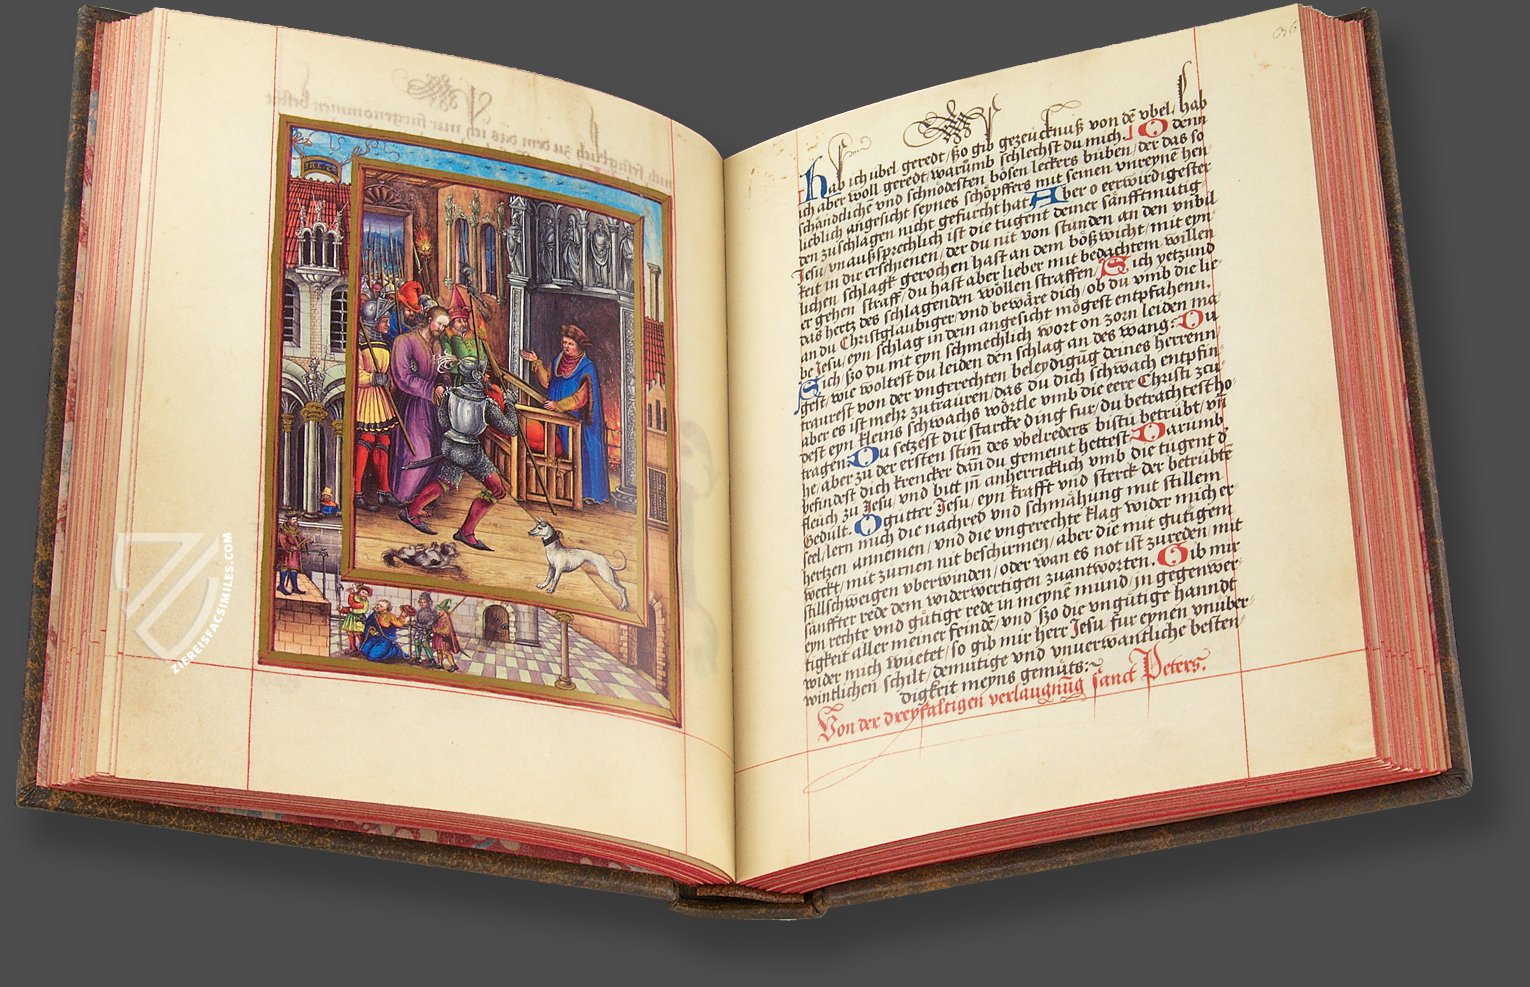 Hab ich ubel geredt/ ßo gib gezeücknuß von dē vbel/ hab
ich aber woll geredt warūmb schlechst du mich. O denn
schändliche vnd schnödesten bösen leckers buben/ der das so
lieblich angesicht seynes schöpffers mit seinen vnreyne hen
den zuschlagen nicht gefurcht hat. Aber o eerwirdigester
Jesu/ vnaußsprechlich ist die tugent deiner sänfftmütig
keit in dir erschienen/ der du nit von stunden an den vnbil
lichen schlagk gerochen hast an dem bößwicht/ mit eyn
er gehen straff/ du hast aber lieber mit bedachtem willen
das hertz des schlagenden wöllen straffen/ Sich yetzund
an du Christglaubiger vnd beware dich/ ob du vmb die lie
be Jesu/ eyn schlag in dein angesicht mögest entpfahenn.
Sich/ ßo du mit eyn schmechlich wort on zorn leiden ma
gest/ wie woltest du leiden den schlag an des wang: Du
traurest von der vngerechten beleydigūg deines herrenn/
aber es ist mehr zutrauren/ das du dich schwach entpfin
dest eyn kleins schwachs wörtle vmb die eere Christi zu
tragen. Du setzest dir starcke ding fur/ du betrachtest ho
he/ aber zu der ersten stim des vbelreders bistu betrübt/ vn̄
befindest dich krencker dañ du gemeint hettest. Darumb
fleuch zu Jesu/ vnd bitt jn̄ anherricklich vmb die tugent d̄
Gedult. O gutter Jesu/ eyn krafft vnd sterck der betrübte
seel/ lern mich die nachred vnd schmähung mit stillem
hertzen annemen/ vnd die vngerechte klag wider mich er
weckt/ mit zurnen nit beschirmen/ aber die mit gutigem
stillschweigen vberwinden/ oder wan es not ist zureden mit
sänffter rede dem widerwertigen zuantworten. Gib mir
eyn rechte vnd gütige rede in meynē mund/ in gegenwer
tigkeit aller meiner feindē/ vnd/ ßo die vngütige hanndt
wider mich wüetet/ so gib mir herr Jesu fur eynen vnüber
wintlichen schilt/ demütige vnd vnuerwantliche besten
digkeit meyns gemüts:
Von der dreyfaltigen verlaugnūg sanct Peters.
ZIEREISFACSIMILES.COM